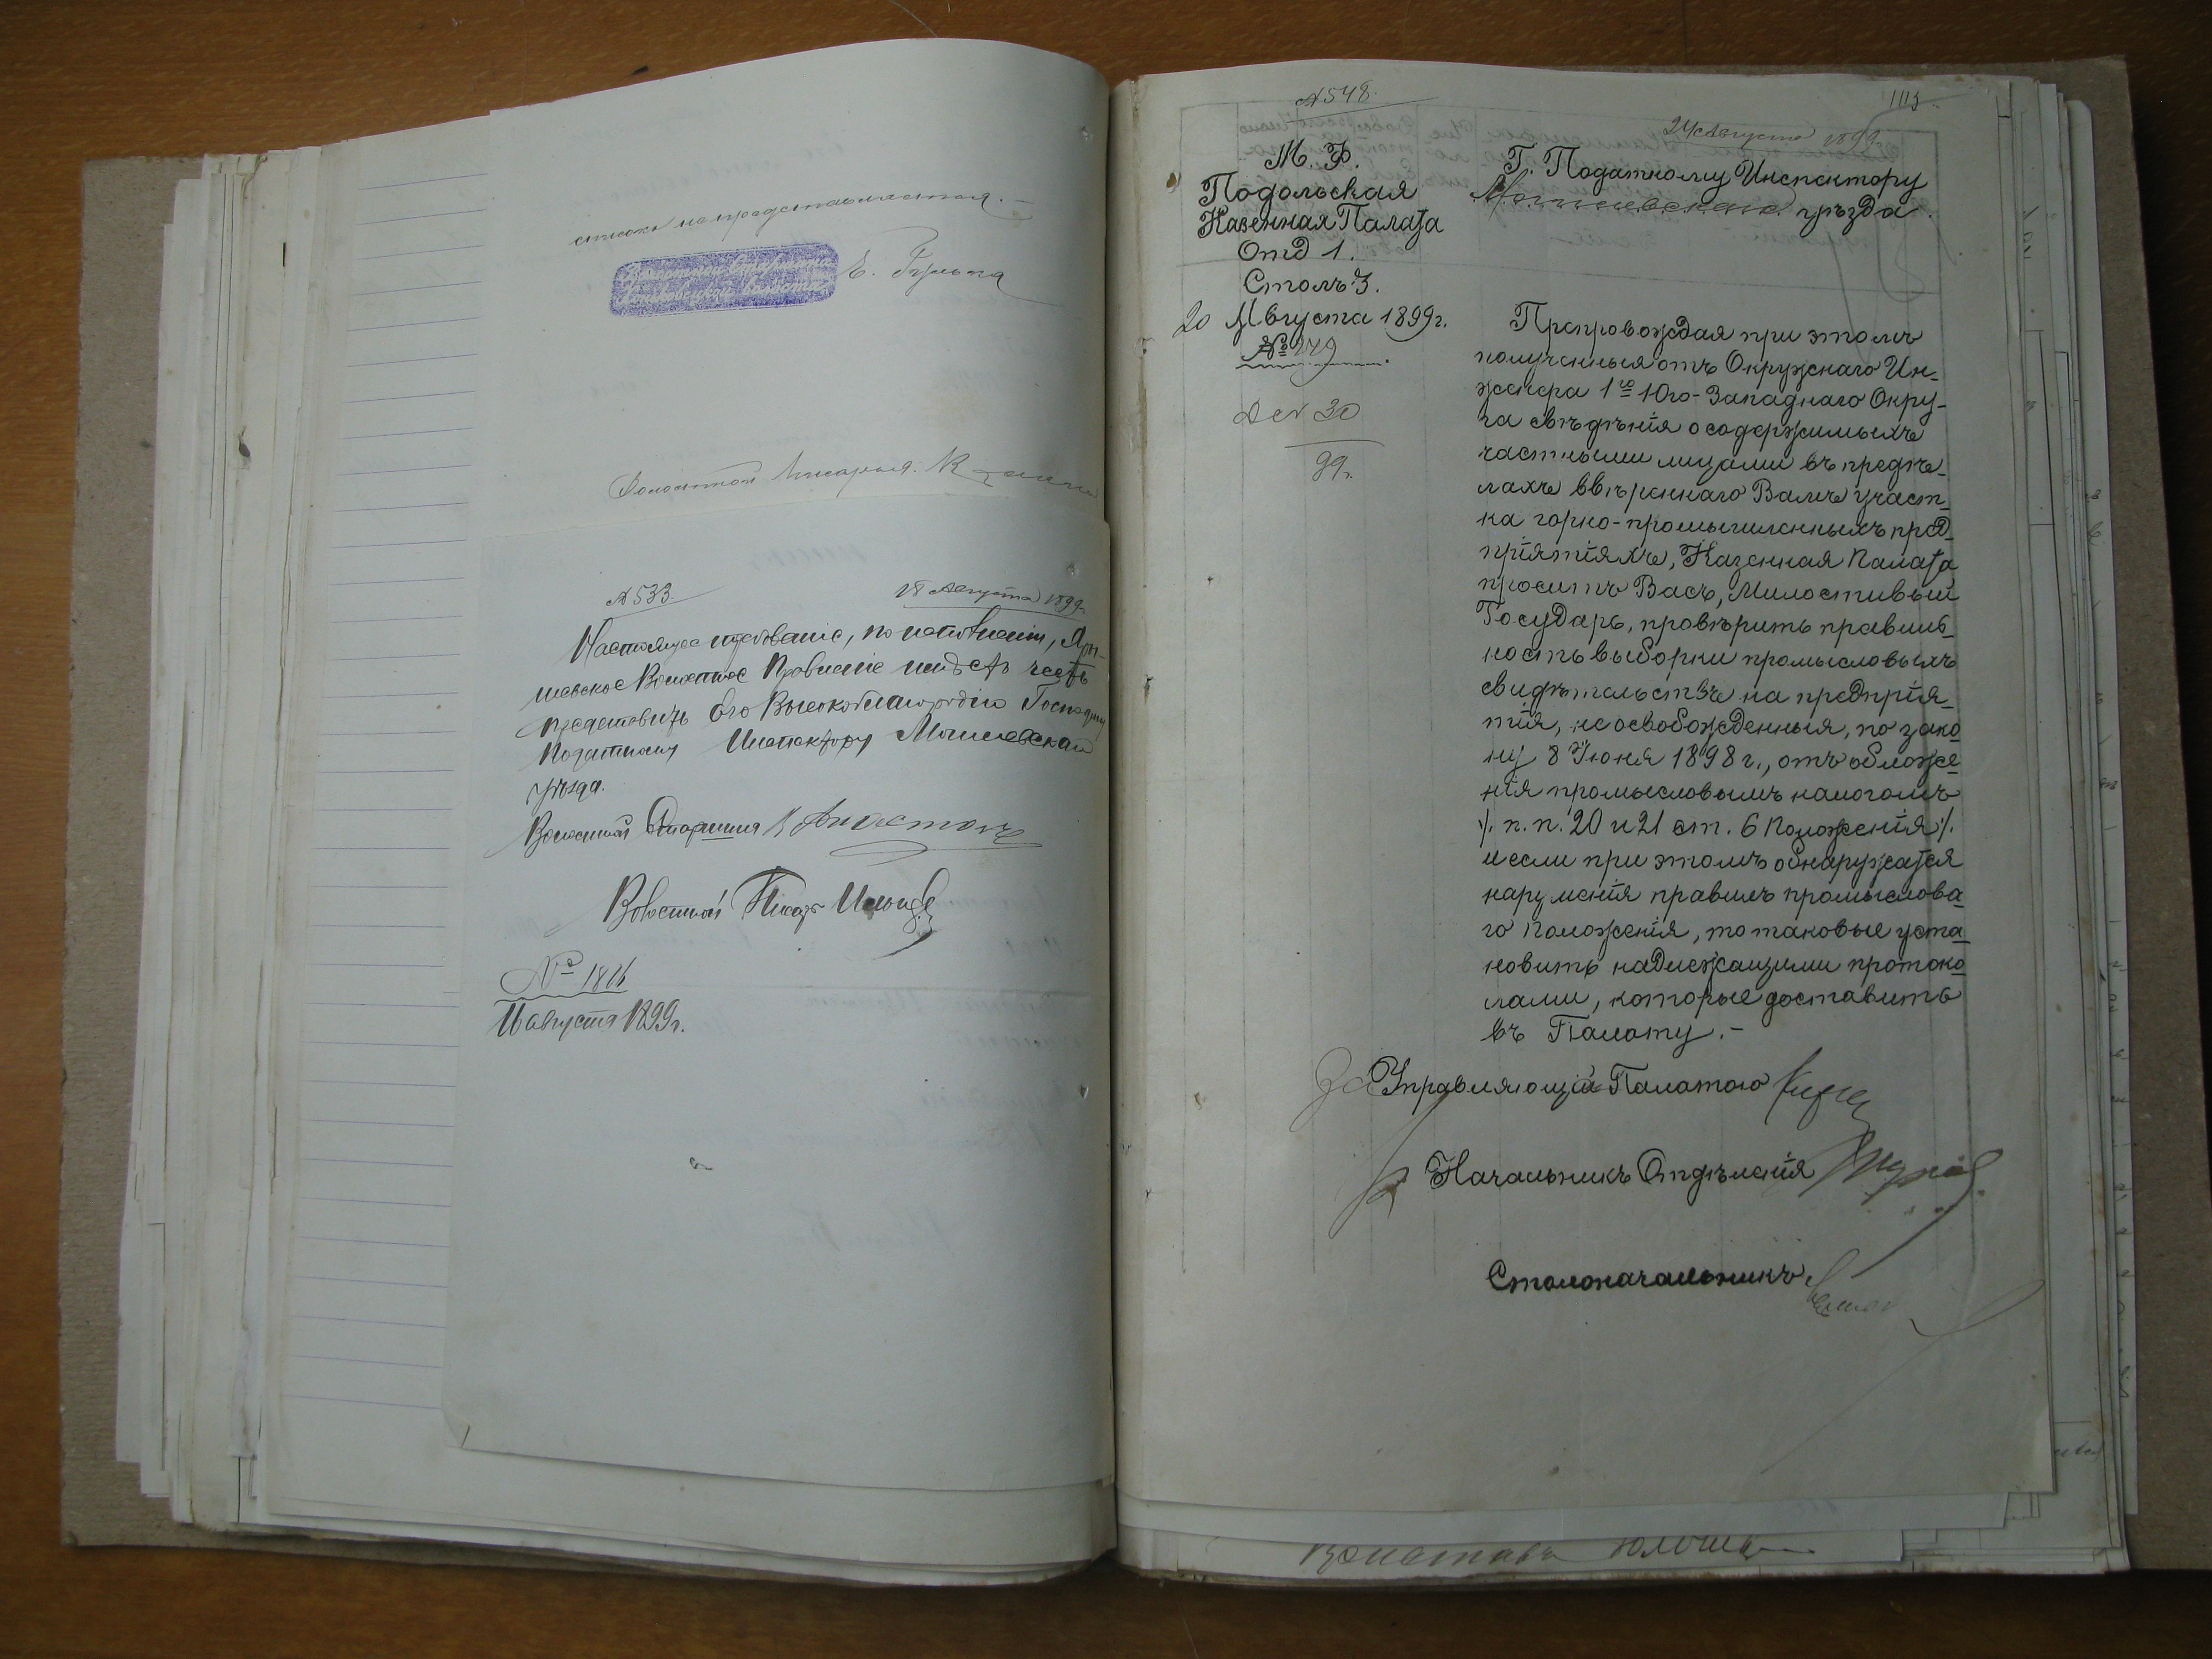 списокъ не представляется. –
Волостной Старшина
волости
Волостной Писарь
№ 533.
18 Августа 1899г.
Настоящее требованіе, по исполненіи, Яры-
шевское Волостное Правленіе имѣетъ честь
представить Его Высокоблагородію Господину
Податному Инспектору Могилевскаго
уѣзда.
Волостной Старшина
Волостной Писарь
№ 1816
11 августа 1899г.
№ 548.
113
24 Августа 1899г.
М. Ф.
Подольская
Казенная Палата
Отд 1.
Столъ 3.
20 Августа 1899г.
№
30
99г.
Г. Податному Инспектору
Могилевскаго уѣзда.
Препровождая при этомъ
полученныя отъ Окружнаго Ин-
женера 1го Юго-Западнаго Окру-
га свѣдѣнія о содержимыхъ
частными лицами въ предѣ-
лахъ ввѣреннаго Вамъ участ-
ка горно-промышленныхъ пред-
пріятіяхъ, Казенная Палата
проситъ Васъ, Милостивый
Государь, провѣрить правиль-
ность выборки промысловыхъ
свидѣтельствъ на предпрія-
тія, не освобожденныя, по зако-
ну 8 Іюня 1898 г., отъ обложе-
нія промысловымъ налогомъ
/. п. п. 20 и 21 ст. 6 Положенія /.
и если при этомъ обнаружатся
нарушенія правилъ промыслова-
го Положенія, то таковые уста-
новить надлежащими протоко-
лами, которые доставить
въ Палату. –
За Управляющій Палатою
Начальникъ Отдѣленія
Столоначальникъ